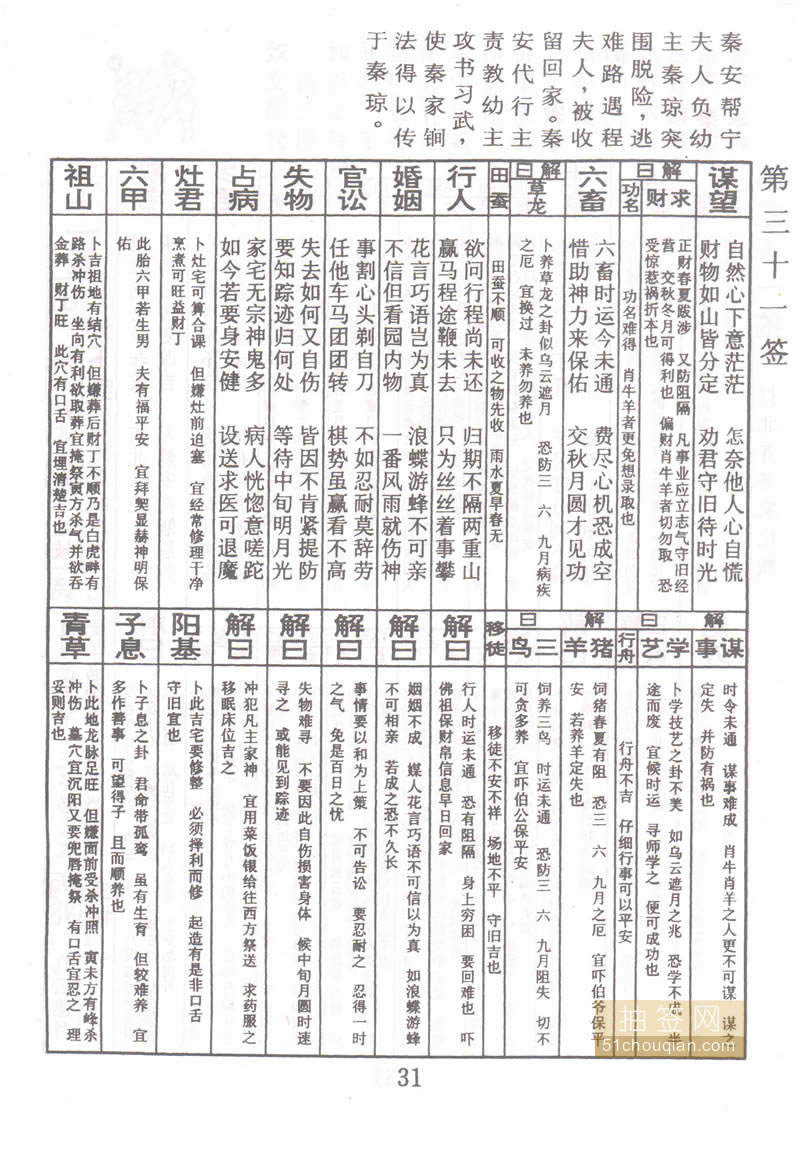 第三十一签
秦安帮宁
夫人负幼
主秦琼突
围脱险，逃
难路遇程
夫人，被收
留回家。秦
安代行主
责教幼主
攻书习武，
使秦家锏
法得以传
于秦琼。
谋望
自然心下意茫茫　怎奈他人心自慌
财物如山皆分定　劝君守旧待时光
解曰
求财
正财春夏跋涉　又防阻隔　凡事业应立志气守旧经
营　交秋冬月可得利也　偏财肖牛羊者切勿取　恐
受惊惹祸折本也
功名
功名难得　肖牛羊者更免想录取也
六畜
六畜时运今未通　费尽心机恐成空
惜助神力来保佑　交秋月圆才见功
解曰
草龙
卜养草龙之卦似乌云遮月　恐防三　六　九月病疾
之厄　宜换过　未养勿养也
田蚕
田蚕不顺　可收之物先收　雨水夏早春无
行人
欲问行程尚未还　归期不隔两重山
赢马程途鞭未去　只为丝丝着事攀
婚姻
花言巧语岂为真　浪蝶游蜂不可亲
不信但看园内物　一番风雨就伤神
官讼
事割心头剃自刀　不如忍耐莫辞劳
任他车马团团转　棋势虽赢看不高
失物
失去如何又自伤　皆因不肯紧提防
要知踪迹归何处　等待中旬明月光
占病
家宅无宗神鬼多　病人恍惚意嗟跎
如今若要身安健　设送求医可退魔
灶君
卜灶宅可算合课　但嫌灶前迫塞　宜经常修理干净
烹煮可旺益财丁
六甲
此胎六甲若生男　夫有福平安　宜拜契显赫神明保
佑
祖山
卜吉祖地有结穴　但嫌葬后财丁不顺乃是白虎畔有
路杀冲伤　坐向有利欲取葬宜掩祭寅方杀气并欲吞
金葬　财丁旺　此穴有口舌　宜埋清楚吉也
解曰
谋事
时令未通　谋事难成　肖牛肖羊之人更不可谋　谋之
定失　并防有祸也
学艺
卜学技艺之卦不美　如乌云遮月之兆　恐学不成　半
途而废　宜候时运　寻师学之　便可成功也
行舟
行舟不吉　仔细行事可以平安
解曰
猪羊
饲猪春夏有阻　恐三　六　九月之厄　宜吓伯爷保平
安　若养羊定失也
三鸟
饲养三鸟　时运未通　恐防三　六　九月阻失　切不
可贪多养　宜吓伯公保平安
移徒
移徒不安不祥　场地不平　守旧吉也
解曰
行人时运未通　恐有阻隔　身上穷困　要回难也　吓
佛祖保财帛信息早日回家
解曰
姻姻不成　媒人花言巧语不可信以为真　如浪蝶游蜂
不可相亲　若成之恐不久长
解曰
事情要以和为上策　不可告讼　要忍耐之　忍得一时
之气　免是百日之忧
解曰
失物难寻　不要因此自伤损害身体　候中旬月圆时速
寻之　或能见到踪迹
解曰
冲犯凡主家神　宜用菜饭银给往西方祭送　求药服之
移眠床位吉之
阳基
卜此吉宅要修整　必须择利而修　起造有是非口舌
守旧宜也
子息
卜子息之卦　君命带孤鸾　虽有生育　但较难养　宜
多作善事　可望得子　且而顺养也
青草
卜此地龙脉足旺　但嫌面前受杀冲照　寅未方有峰杀
冲伤　墓穴宜沉阳又要兜唇掩祭　有口舌宜忍之　理
妥则吉也
抽签网
51chouqian.com
31